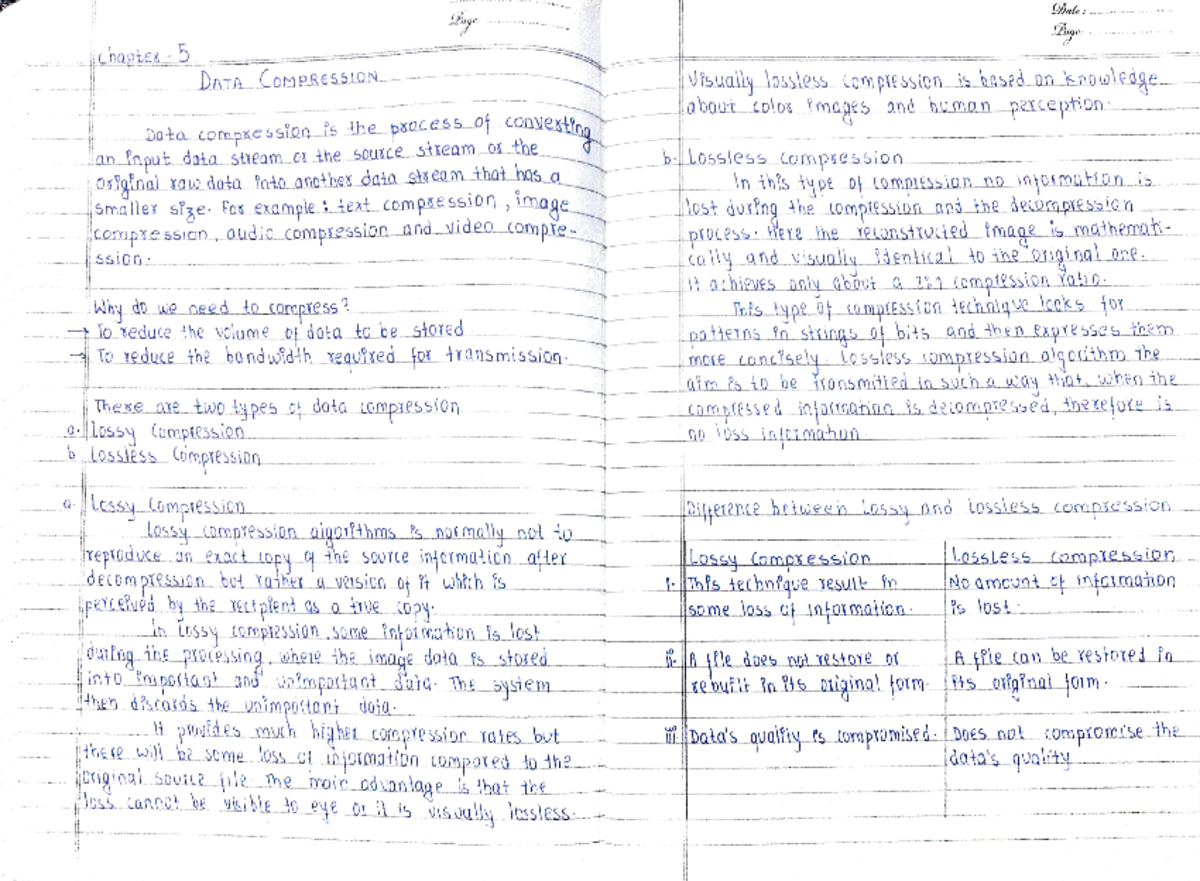 Page
Chapter - 5
DATA COMPRESSION
Data compression is the process of converting
an input data stream or the source stream or the
original raw data into another data stream that has a
smaller size. For example: text compression, image
compression, audio compression and video compre-
ssion.
Why do we need to compress?
→ To reduce the volume of data to be stored
→ To reduce the bandwidth required for transmission.
There are two types of data compression
a. Lossy Compression
b. Lossless Compression
a. Lossy Compression
Lossy compression algorithms is normally not to
reproduce an exact copy of the source information after
decompression but rather a version of it which is
perceived by the recipient as a true copy.
In lossy compression some information is lost
during the processing, where the image data is stored
into important and unimportant data. The system
then discards the unimportant data.
It provides much higher compression rates but
there will be some loss of information compared to the
original source file. The main advantage is that the
loss cannot be visible to eye or it is visually lossless.
Date:
Page
Visually lossless compression is based on knowledge
about color images and human perception.
b. Lossless compression
In this type of compression no information is
lost during the compression and the decompression
process. Here the reconstructed image is mathemati-
cally and visually identical to the original one.
It achieves only about a 2:1 compression ratio.
This type of compression technique looks for
patterns in strings of bits and then expresses them
more concisely. Lossless compression algorithm the
aim is to be transmitted in such a way that, when the
compressed information is decompressed, therefore is
no loss information
Difference between Lossy and lossless compression
Lossy Compression Lossless compression
i. This technique result in No amount of information
some loss of information. is lost.
ii. A file does not restore or A file can be restored in
rebuilt in its original form. its original form.
iii. Data's quality is compromised. Does not compromise the
data's quality